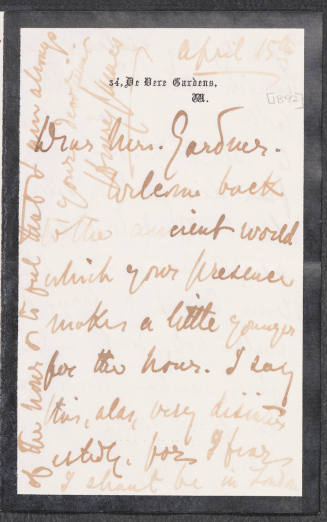 April 15th
34, De Vere Gardens,
W.
[1892]
Dear Mrs. Gardner.
Welcome back
to the ancient world
which your presence
makes a little younger
for the hour. I say
this, alas, very disinter-
estedly, for I fear
I shan't be in London
of the hour or to feel that I am always
yours
Henry James